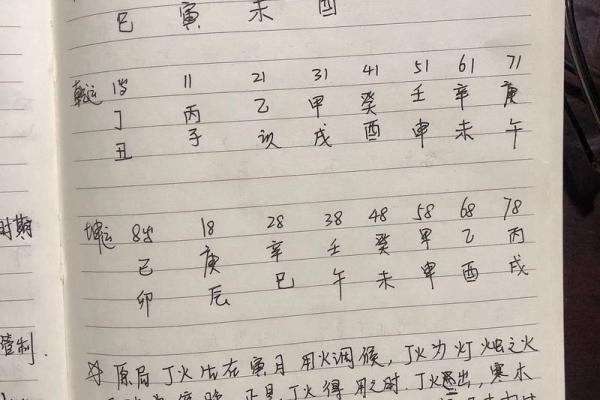 巳 寅 未 酉
乾运 1岁 11 21 31 41 51 61 71
丁 丙 乙 甲 癸 壬 辛 庚
丑 子 亥 戌 酉 申 未 午
时期
坤运 8岁 18 28 38 48 58 68 78
己 庚 辛 壬 癸 甲 乙 丙
卯 辰 巳 午 未 申 酉 戌
管制.
原局丁火生在寅月用火调候,丁火为灯烛之火
正是丁火得用之时.丁火透出,寒木